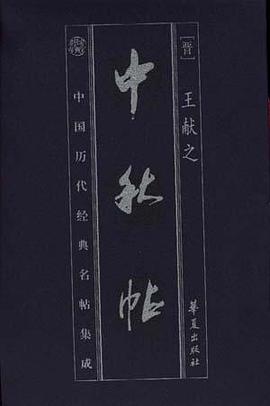 [晋]
王献之
中秋帖
中国历代经典名帖集成
华夏出版社